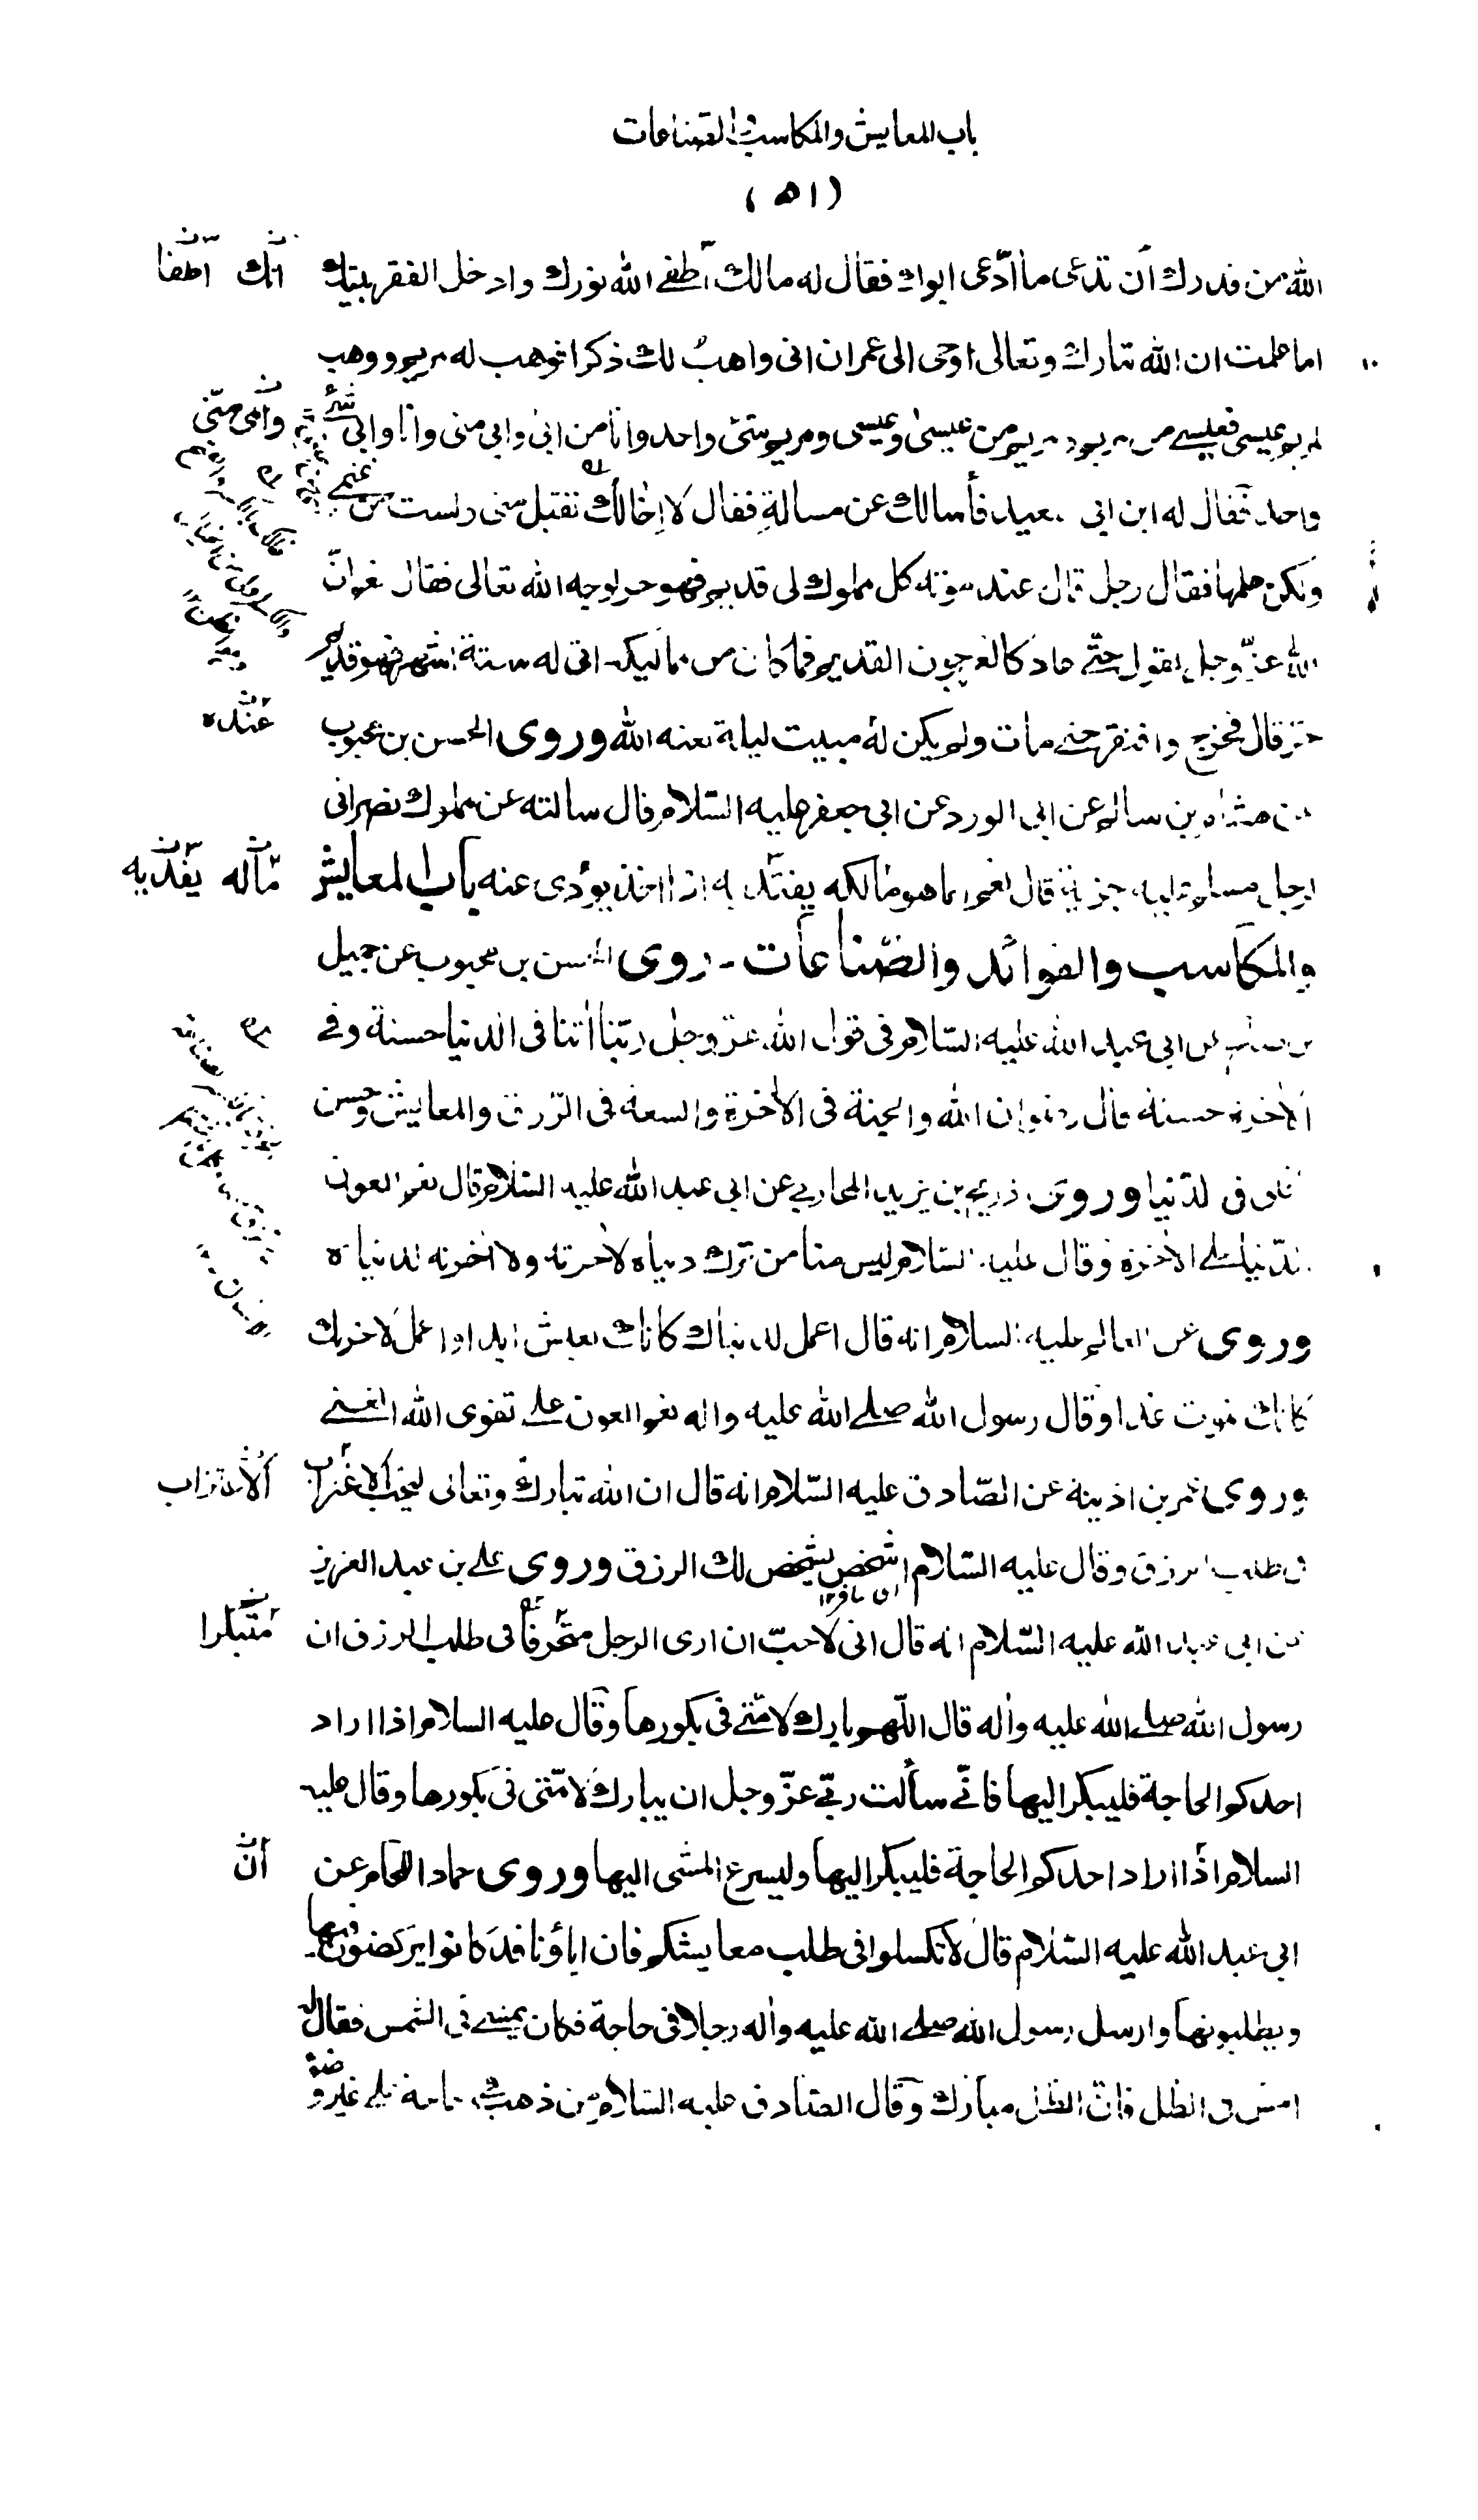 باب المعايش والمكاسب والصناعات
(٥١)
الله من قدرك ان تدعى ما ادّعى ابواك فقال له مالك اطفى الله نورك وادخل الفقر بيتك
انك اطفا
اما علمت ان الله تبارك وتعالى اوحى الى عمران انى واهب لك ذكرا فوهب له مريم ووهب
لمريم عيسى فعيسى من مريم ومريم من عيسى وعيسى ومريم شئ واحد وانا من ابى وابى منى وانا وابى شئ
وابى منّى
واحد فقال له ابن ابى سعيد فأسالك عن مسالة فقال لا اخالك تقبل منى ولست من غنمى
ولكن هلمها فقال رجل قال عند موته كل مملوك لى قديم فهو حر لوجه الله تعالى فقال نعم انّ
الله عزّ وجل يقول حتّى عاد كالعرجون القديم فما كان من مماليكه اتى له ستة اشهر فهو قديم
حر قال فخرج وافتقر حتى مات ولم يكن له مبيت ليلة لعنه الله وروى الحسن بن محبوب
عنده
عن هشام بن سالم عن ابى الورد عن ابى جعفر عليه السّلام قال سالته عن مملوك نصرانى
لرجل مسلم عليه جزية قال نعم انما هو مالكه يفتديه اذا اخذ يؤدى عنه باب المعايش
ماله يفديه
والمكاسب والفوائد والصّناعات - روى الحسن بن محبوب عن جميل
بن صالح عن ابى عبد الله عليه السّلام فى قول الله عزّ وجل ربّنا اتنا فى الدنيا حسنة وفى
الاخرة حسنة قال رضوان الله والجنة فى الاخرة والسعة فى الرّزق والمعايش وحسن
الخلق فى الدّنيا وروى ذريح بن يزيد المحاربى عن ابى عبد الله عليه السّلام قال نعم العون
الدّنيا على الاخرة وقال عليه السّلام ليس منا من ترك دنياه لاخرته ولا اخرته لدنياه
وروى عن العالم عليه السلام انه قال اعمل لدنياك كانك تعيش ابدا واعمل لاخرتك
كانك تموت غدا وقال رسول الله صلى الله عليه واله نعم العون على تقوى الله الغنى
وروى عمر بن اذينة عن الصّادق عليه السّلام انه قال ان الله تبارك وتعالى ليحب الاغتراب
الاعتزاب
فى طلب الرزق وقال عليه السّلام اشخص يشخص لك الرزق وروى على بن عبد العزيز
اى سافر ١٢
عن ابى عبد الله عليه السّلام انه قال انى لاحبّ ان ارى الرجل متحرفا فى طلب الرزق ان
متبكرا
رسول الله صلى الله عليه واله قال اللّهم بارك لامّتى فى بكورها وقال عليه السلام اذا اراد
احدكم الحاجة فليبكر اليها فانّى سألت ربّى عزّ وجل ان يبارك لامّتى فى بكورها وقال عليه
السلام اذا اراد احدكم الحاجة فليبكر اليها وليسرع المشى اليها وروى حماد اللحام عن
انّ
ابى عبد الله عليه السّلام قال لا تكسلوا فى طلب معايشكم فان اباؤنا قد كانوا يركضون فيها
ويطلبونها وارسل رسول الله صلى الله عليه واله رجلا فى حاجة فكان يمشى فى الشمس فقال له
امش فى الظل فانّ الظل مبارك وقال الصّادق عليه السّلام من ذهب فى حاجة على غير وضوء